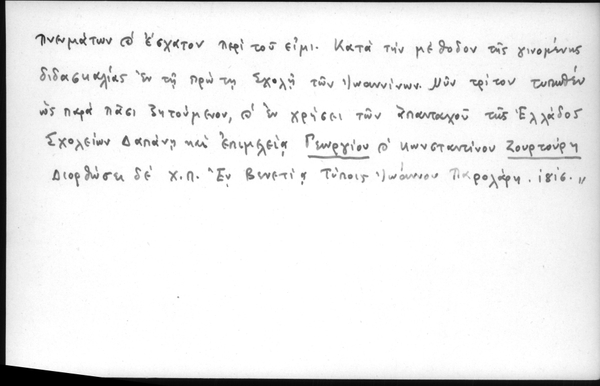 πνευμάτων ϗ ἔσχατον περὶ τοῦ εἰμι. Κατὰ τὴν μέθοδον τῆς γινομένης
διδασκαλίας ἐν τῇ πρώτῃ Σχολῇ τῶν Ἰωαννίνων. Νῦν τρίτον τυπωθὲν
ὡς παρὰ πᾶσι ζητούμενον, ϗ ἐν χρήσει τῶν ἁπανταχοῦ τῆς Ἑλλάδος
Σχολείων Δαπάνῃ καὶ ἐπιμελείᾳ Γεωργίου ϗ Κωνσταντίνου Ζουρτούρη
Διορθώσει δὲ Χ.Π. Ἐν Βενετίᾳ Τύποις Ἰωάννου Παρολάρη. 1816."